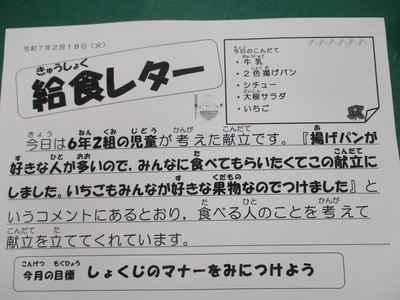 令和7年2月18日（火）
きゅうしょく
給食レター
今日のこんだて
・牛乳
・２色揚げパン
・シチュー
・大根サラダ
・いちご
今日は6年2組の児童が考えた献立です。『揚げパンが
好きな人が多いので，みんなに食べてもらいたくてこの献立に
しました。いちごもみんなが好きな果物なのでつけました』と
いうコメントにあるとおり，食べる人のことを考えて
献立を立ててくれています。
今月の目標 しょくじのマナーをみにつけよう